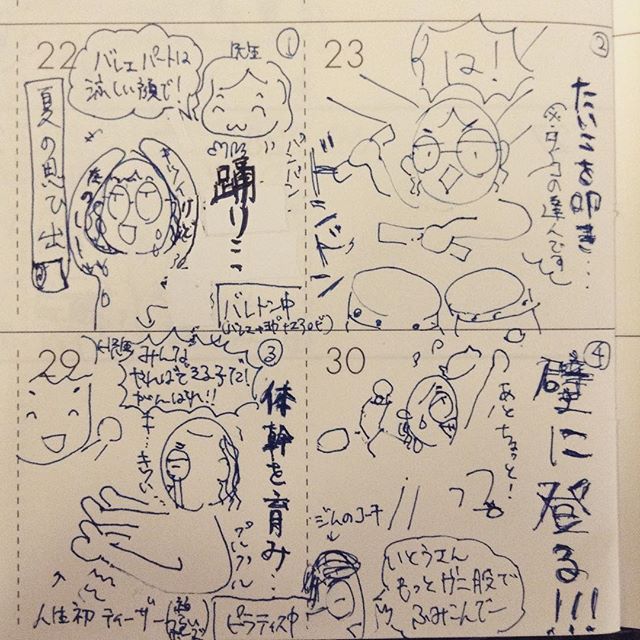 22
①
バレエパートは
涼しい顔で!
先生
夏の思ひ出
キツイけど
パンパン
踊りこ
バレトン中
23
②
は!
たいこを叩き…
※タイコの達人です
ドンドン
29
③
先生
みんな
やればできる子だ!
がんばれ!!
き…きつい…
体幹を育み…
プルプル
人生初 ティーザー
ピラティス中
30
④
壁に登る!!!
あとちょっと!
ジムのコーチ
いとうさん
もっとガニ股で
ふみこんでー